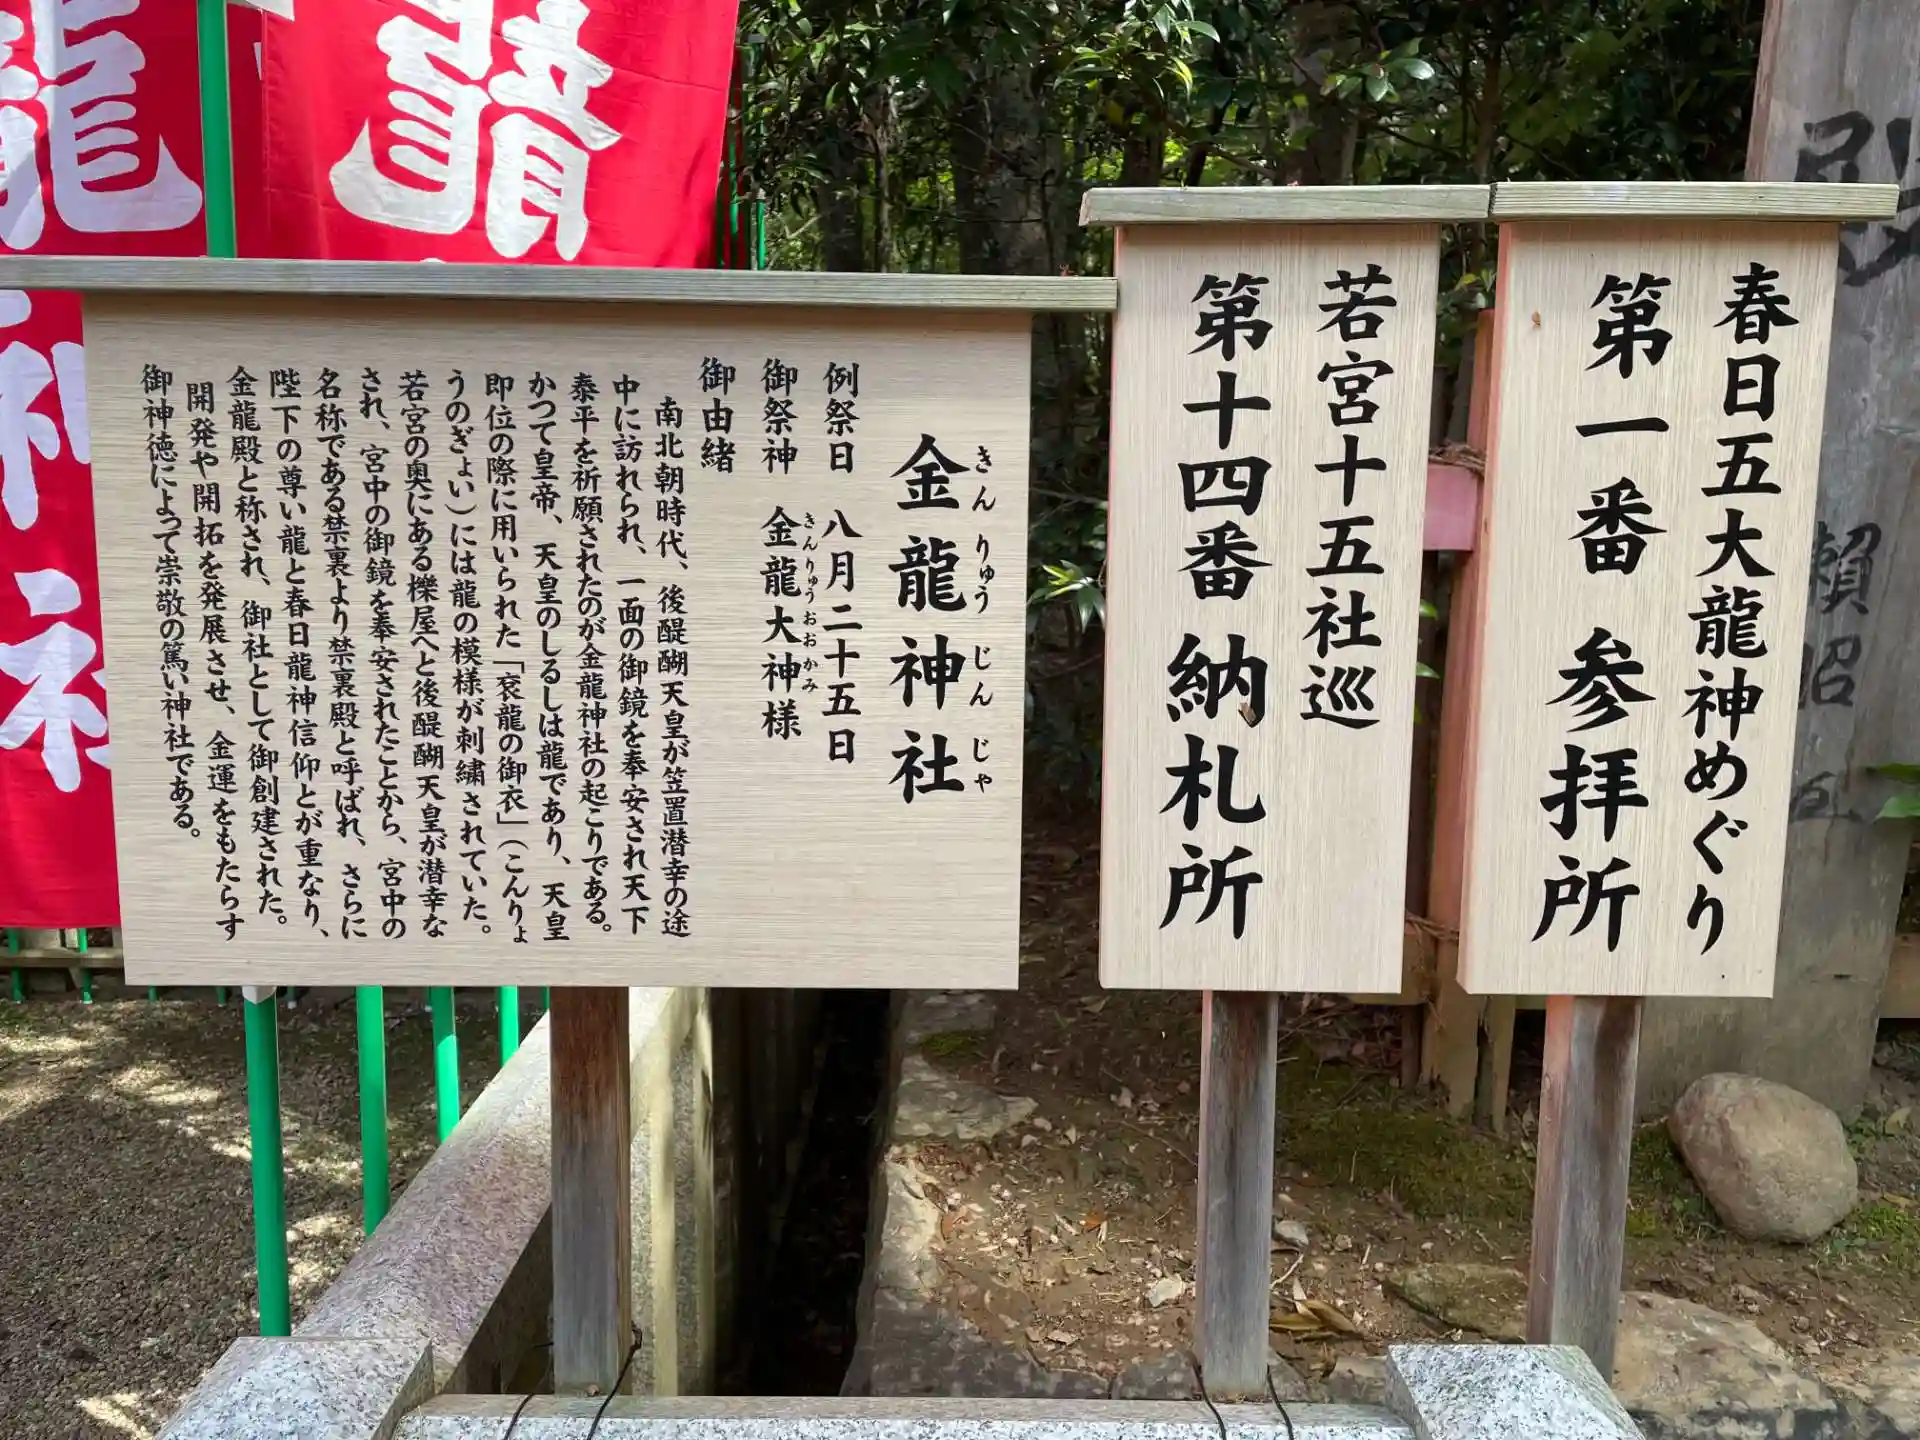 春日五大龍神めぐり
第一番 参拝所
若宮十五社巡
第十四番 納札所
金龍神社
きんりゅうじんじゃ
例祭日 八月二十五日
御祭神 金龍大神様
きんりゅうおおかみ
御由緒
南北朝時代、後醍醐天皇が笠置潜幸の途
中に訪れられ、一面の御鏡を奉安され天下
泰平を祈願されたのが金龍神社の起こりである。
かつて皇帝、天皇のしるしは龍であり、天皇
即位の際に用いられた「袞龍の御衣」(こんりょ
うのぎょい)には龍の模様が刺繍されていた。
若宮の奥にある櫟屋へと後醍醐天皇が潜幸な
され、宮中の御鏡を奉安されたことから、宮中の
名称である禁裏より禁裏殿と呼ばれ、さらに
陛下の尊い龍と春日龍神信仰とが重なり、
金龍殿と称され、御社として御創建された。
開発や開拓を発展させ、金運をもたらす
御神徳によって崇敬の篤い神社である。
龍
龍
神
社